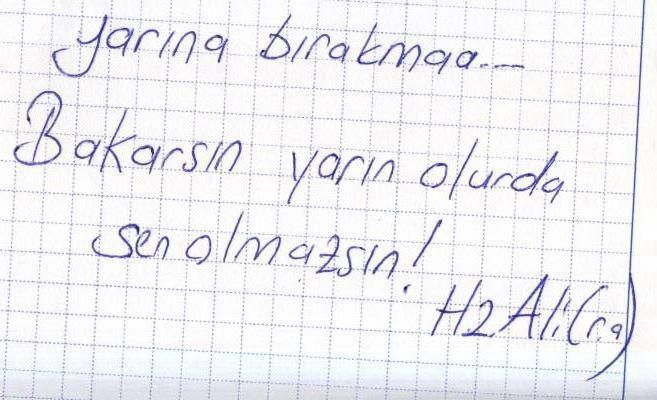 yarına bırakmaa...
Bakarsın yarın olurda
sen olmazsın!
Hz Ali (r.a)